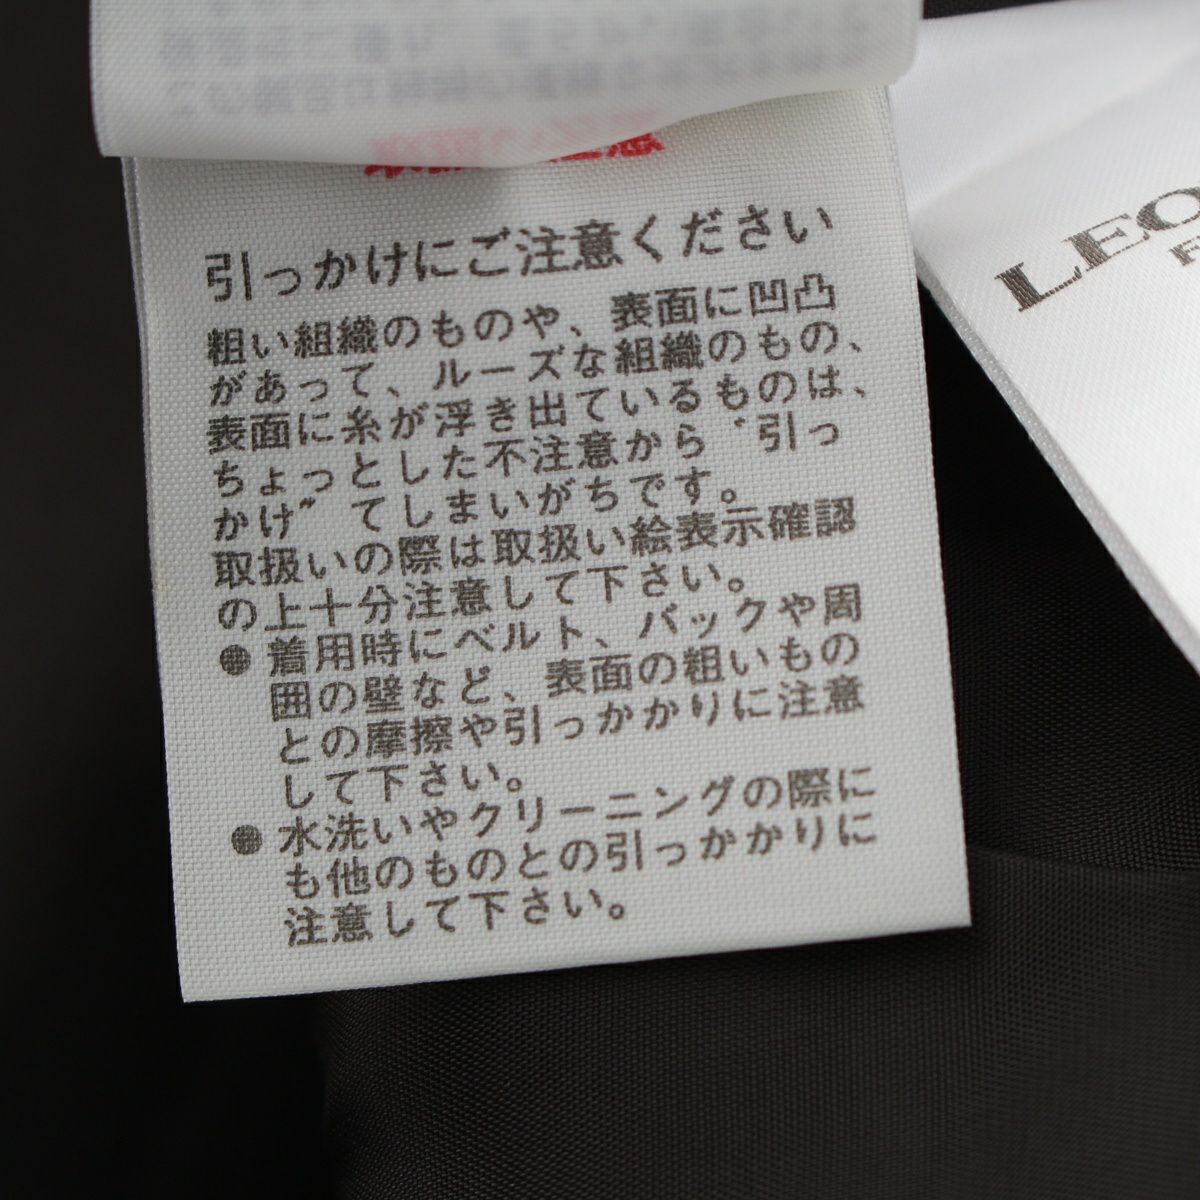 引っかけにご注意ください
粗い組織のものや、表面に凹凸
があって、ルーズな組織のもの、
表面に糸が浮き出ているものは、
ちょっとした不注意から〝引っ
かけ〟てしまいがちです。
取扱いの際は取扱い絵表示確認
の上十分注意して下さい。
● 着用時にベルト、バックや周
囲の壁など、表面の粗いもの
との摩擦や引っかかりに注意
して下さい。
● 水洗いやクリーニングの際に
も他のものとの引っかかりに
注意して下さい。